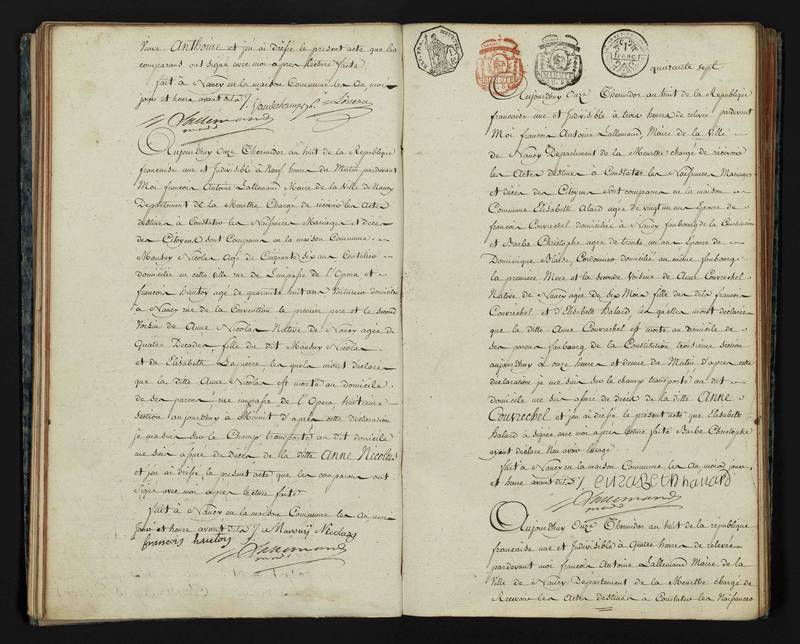 Veuve Anthoine et j'ai dressé le present acte que les
comparans ont signé avec moi apres lecture faite
fait à Nancy en la maison Commune les an mois
jour et heure avant dits
Lallemand
maire
Aujourdhuy Onze Thermidor an huit de la Republique
francaise une et Indivisible à Neuf heures du Matin pardevant
Moi francois Antoine Lallemand Maire de la Ville de Nancy
Departement de la Meurthe Chargé de recevoir les Actes
destinés à Constater les Naissances Mariages et décès
des Citoyens sont Comparus en la maison Commune
Mansuy Nicolas Agé de Cinquante six ans Coutelier
domicilié en cette ville rue de l'impasse de l'Opera et
francois hautoy agé de quarante huit ans Voiturier domicilié
à Nancy rue de la Convention le premier pere et le second
Voisin de Anne Nicolas Native de Nancy agée de
Quatre Decades fille du dit Mansuy Nicolas
et de Elisabeth Lapierre les quels m'ont declaré
que la ditte Anne Nicolas est morte au domicile
de ses parens rue impasse de l'Opera huitieme
section aujourdhuy à Minuit d'après cette déclaration
je me suis sur le Champ transporté au dit domicile
me suis assuré du decès de la ditte Anne Nicolas
et j'ai dressé le present acte que les comparans ont
Signé avec moi apres lecture faite
fait à Nancy en la maison Commune les An mois
jour et heure avant dits Mansuij Nicolas
francois hautoy
Lallemand
maire
quarante sept
Aujourdhuy Onze Thermidor an huit de la Republique
francaise une et Indivisible à trois heures de relevée pardevant
Moi francois Antoine Lallemand, Maire de la Ville
de Nancy Departement de la Meurthe chargé de recevoir
les Actes destinés à Constater les Naissances Mariages
et décès des Citoyens sont comparues en la maison
Commune Elisabette Alard agée de vingt un ans Epouse de
francois Couvrechel domiciliée à Nancy faubourg de la Constitution
et Barbe Christophe agée de trente un ans Epouse de
Dominique Blaise Cordonnier domicilié au même faubourg
la premiere Mere et la seconde Voisine de Anne Couvrechel
Native de Nancy agée de six Mois fille des dits francois
Couvrechel et d'Elisabette halard les quelles m'ont declarée
que la ditte Anne Couvrechel est morte au domicile de
ses parens faubourg de la Constitution troisième section
aujourdhuy à onze heures et demie du Matin d'apres cette
declaration je me suis sur le champ transporté au dit
domicile me suis assuré du decès de la ditte Anne
Couvrechel et j'ai dressé le present acte que Elisabette
halard à signée avec moi apres lecture faite Barbe Christophe
ayant declaré ne savoir
fait à Nancy en la maison Commune les An mois jour
et heure avant dits Elizabeth halard
Lallemand
maire
Aujourdhuy Onze Thermidor an huit de la republique
francaise une et Indivisible à Quatre heures de relevée
pardevant moi francois Antoine Lallemand Maire de la
Ville de Nancy Departement de la Meurthe chargé de
Recevoir les Actes destinés à Constater les Naissances